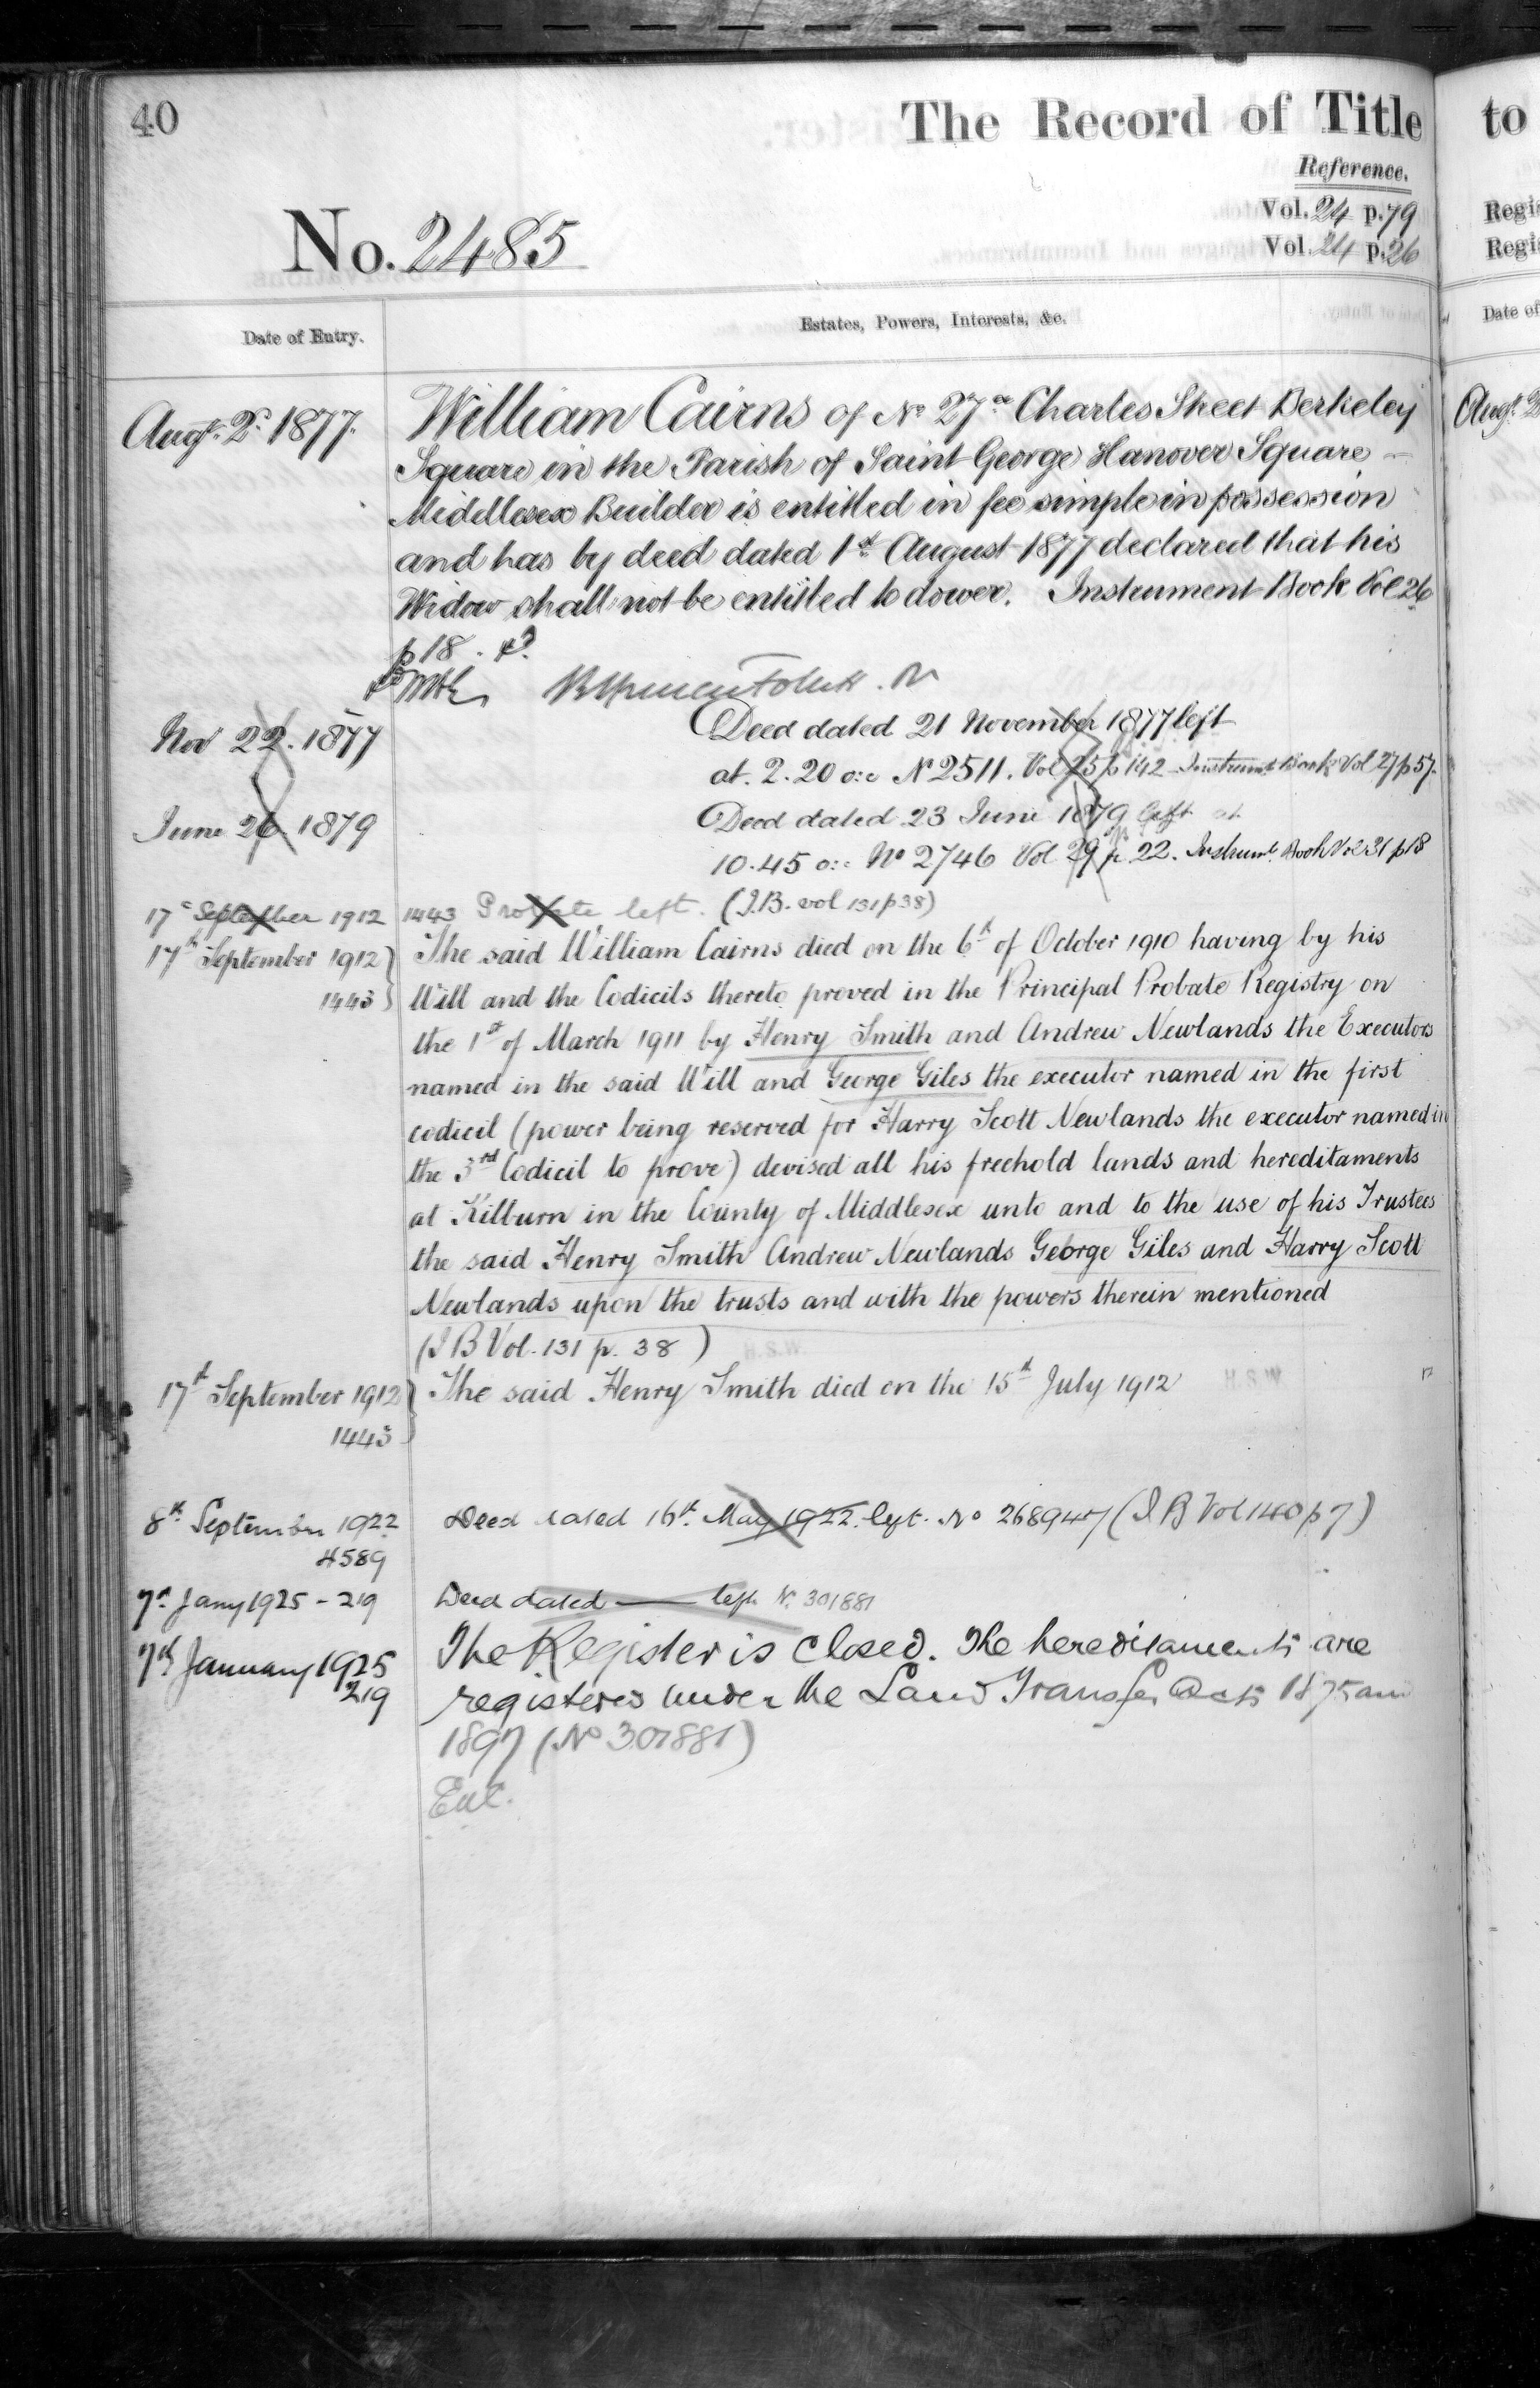 40
The Record of Title
to
Reference.
Vol. 24 p. 79
Regi
No. 2485
Vol. 24 p. 26
Regi
Date of Entry.
Estates, Powers, Interests, &c.
Date of
Augt. 2d. 1877.
William Cairns of No 27a Charles Street Berkeley
Augt. 2
Square in the Parish of Saint George Hanover Square
Middlesex Builder is entitled in fee simple in possession
and has by deed dated 1st August 1877 declared that his
Widow shall not be entitled to dower. Instrument Book Vol 26
p 18.
Nov 22. 1877
Deed dated 21 November 1877 left
at. 2. 20 o:c No 2511. Vol 25 p 142 Instrumt Book Vol 27 p 57.
June 26. 1879
Deed dated 23 June 1879 left at
10.45 o:c No 2746 Vol 29 p 22. Instrumt. Book Vol 31 p 18
17th September 1912
1443 Probate left. (I.B. vol 131 p 38)
17th September 1912
1443
The said William Cairns died on the 6th of October 1910 having by his
Will and the Codicils thereto proved in the Principal Probate Registry on
the 1st of March 1911 by Henry Smith and Andrew Newlands the Executors
named in the said Will and George Giles the executor named in the first
codicil (power being reserved for Harry Scott Newlands the executor named in
the 3rd Codicil to prove) devised all his freehold lands and hereditaments
at Kilburn in the County of Middlesex unto and to the use of his Trustees
the said Henry Smith Andrew Newlands George Giles and Harry Scott
Newlands upon the trusts and with the powers therein mentioned
(I B Vol. 131 p. 38)
17th September 1912
1443
The said Henry Smith died on the 15th July 1912
8th September 1922
4589
Deed dated 16th. May 1922. left. No 268947 (I B Vol 140 p 7)
7th Jany 1925 - 219
Deed dated — left No. 301881
7th January 1925
219
The Register is closed. The hereditaments are
registered under the Land Transfer Acts 1875 and
1897 (No 301881)